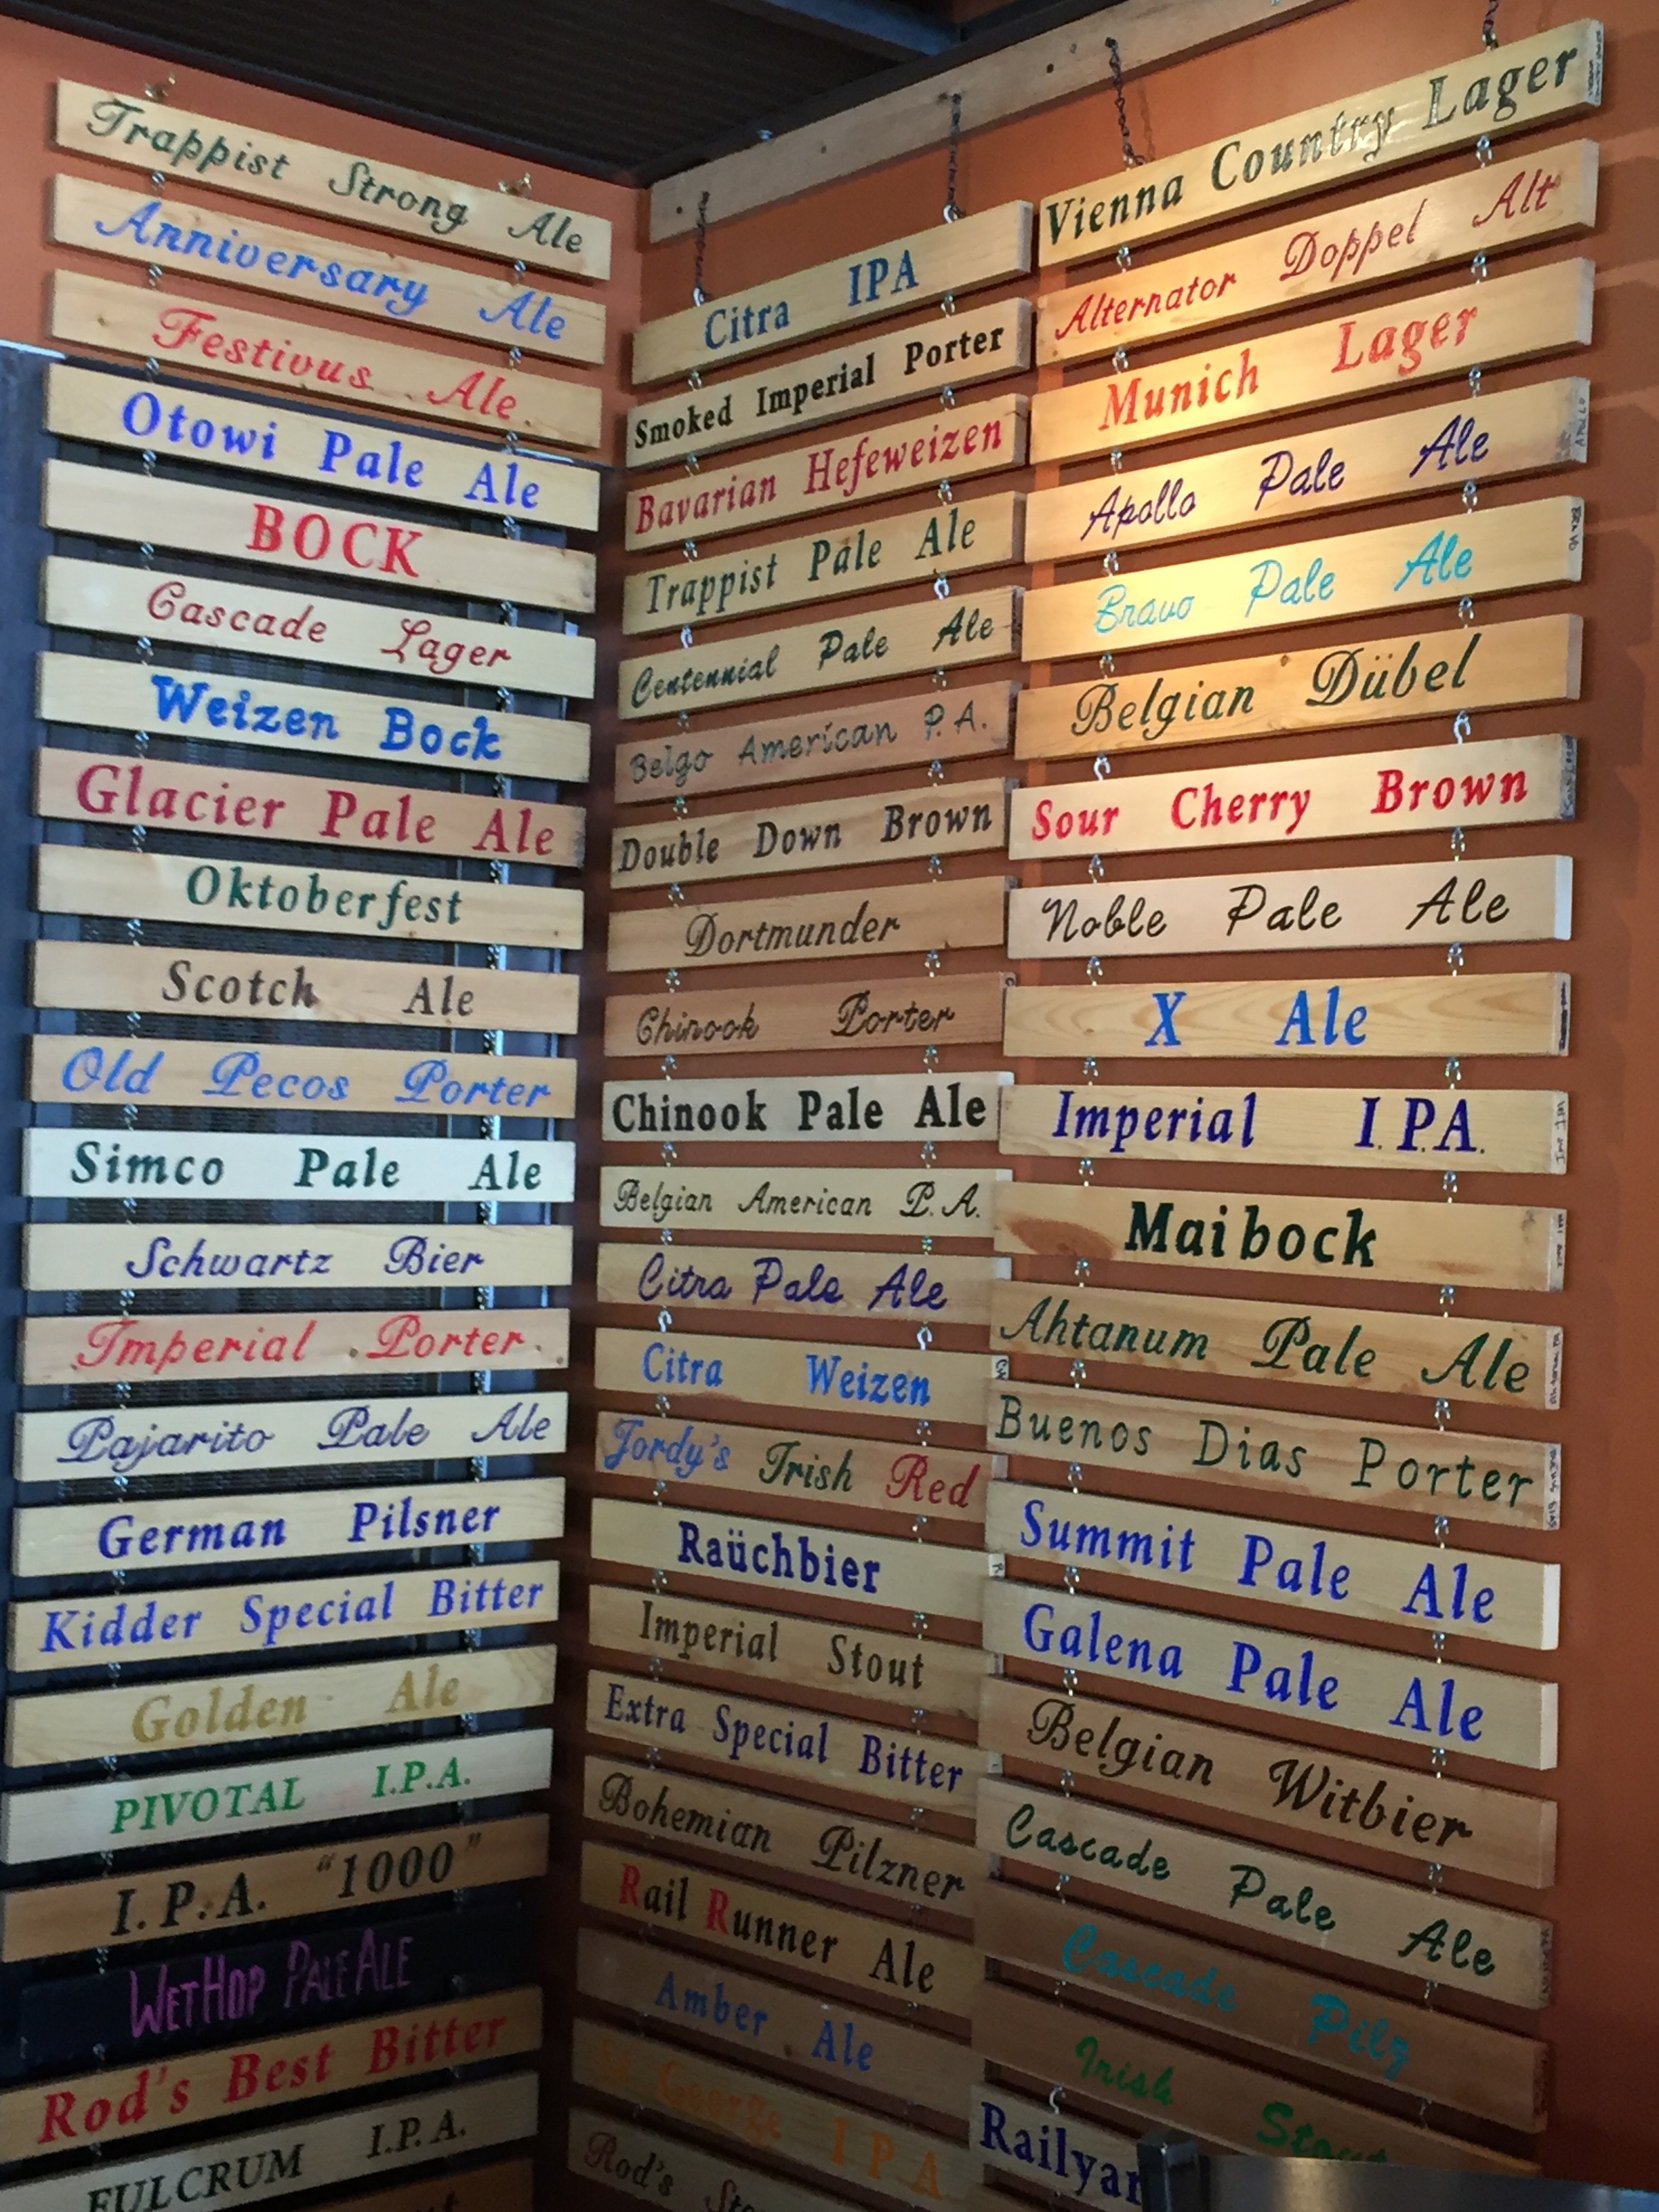 Trappist Strong Ale
Anniversary Ale
Festivus Ale
Otowi Pale Ale
BOCK
Cascade Lager
Weizen Bock
Glacier Pale Ale
Oktoberfest
Scotch Ale
Old Pecos Porter
Simco Pale Ale
Schwartz Bier
Imperial Porter
Pajarito Pale Ale
German Pilsner
Kidder Special Bitter
Golden Ale
PIVOTAL I.P.A.
I.P.A. "1000"
WETHOP PALE ALE
Rod's Best Bitter
FULCRUM I.P.A.
Citra IPA
Smoked Imperial Porter
Bavarian Hefeweizen
Trappist Pale Ale
Centennial Pale Ale
Belgo American P.A.
Double Down Brown
Dortmunder
Chinook Porter
Chinook Pale Ale
Belgian American P.A.
Citra Pale Ale
Citra Weizen
Jordy's Irish Red
Raüchbier
Imperial Stout
Extra Special Bitter
Bohemian Pilzner
Rail Runner Ale
Amber Ale
St George IPA
Rod's
Vienna Country Lager
Alternator Doppel Alt
Munich Lager
Apollo Pale Ale
Bravo Pale Ale
Belgian Dübel
Sour Cherry Brown
Noble Pale Ale
X Ale
Imperial I.P.A.
Maibock
Ahtanum Pale Ale
Buenos Dias Porter
Summit Pale Ale
Galena Pale Ale
Belgian Witbier
Cascade Pale Ale
Cascade Pilz
Irish Stout
Railyar